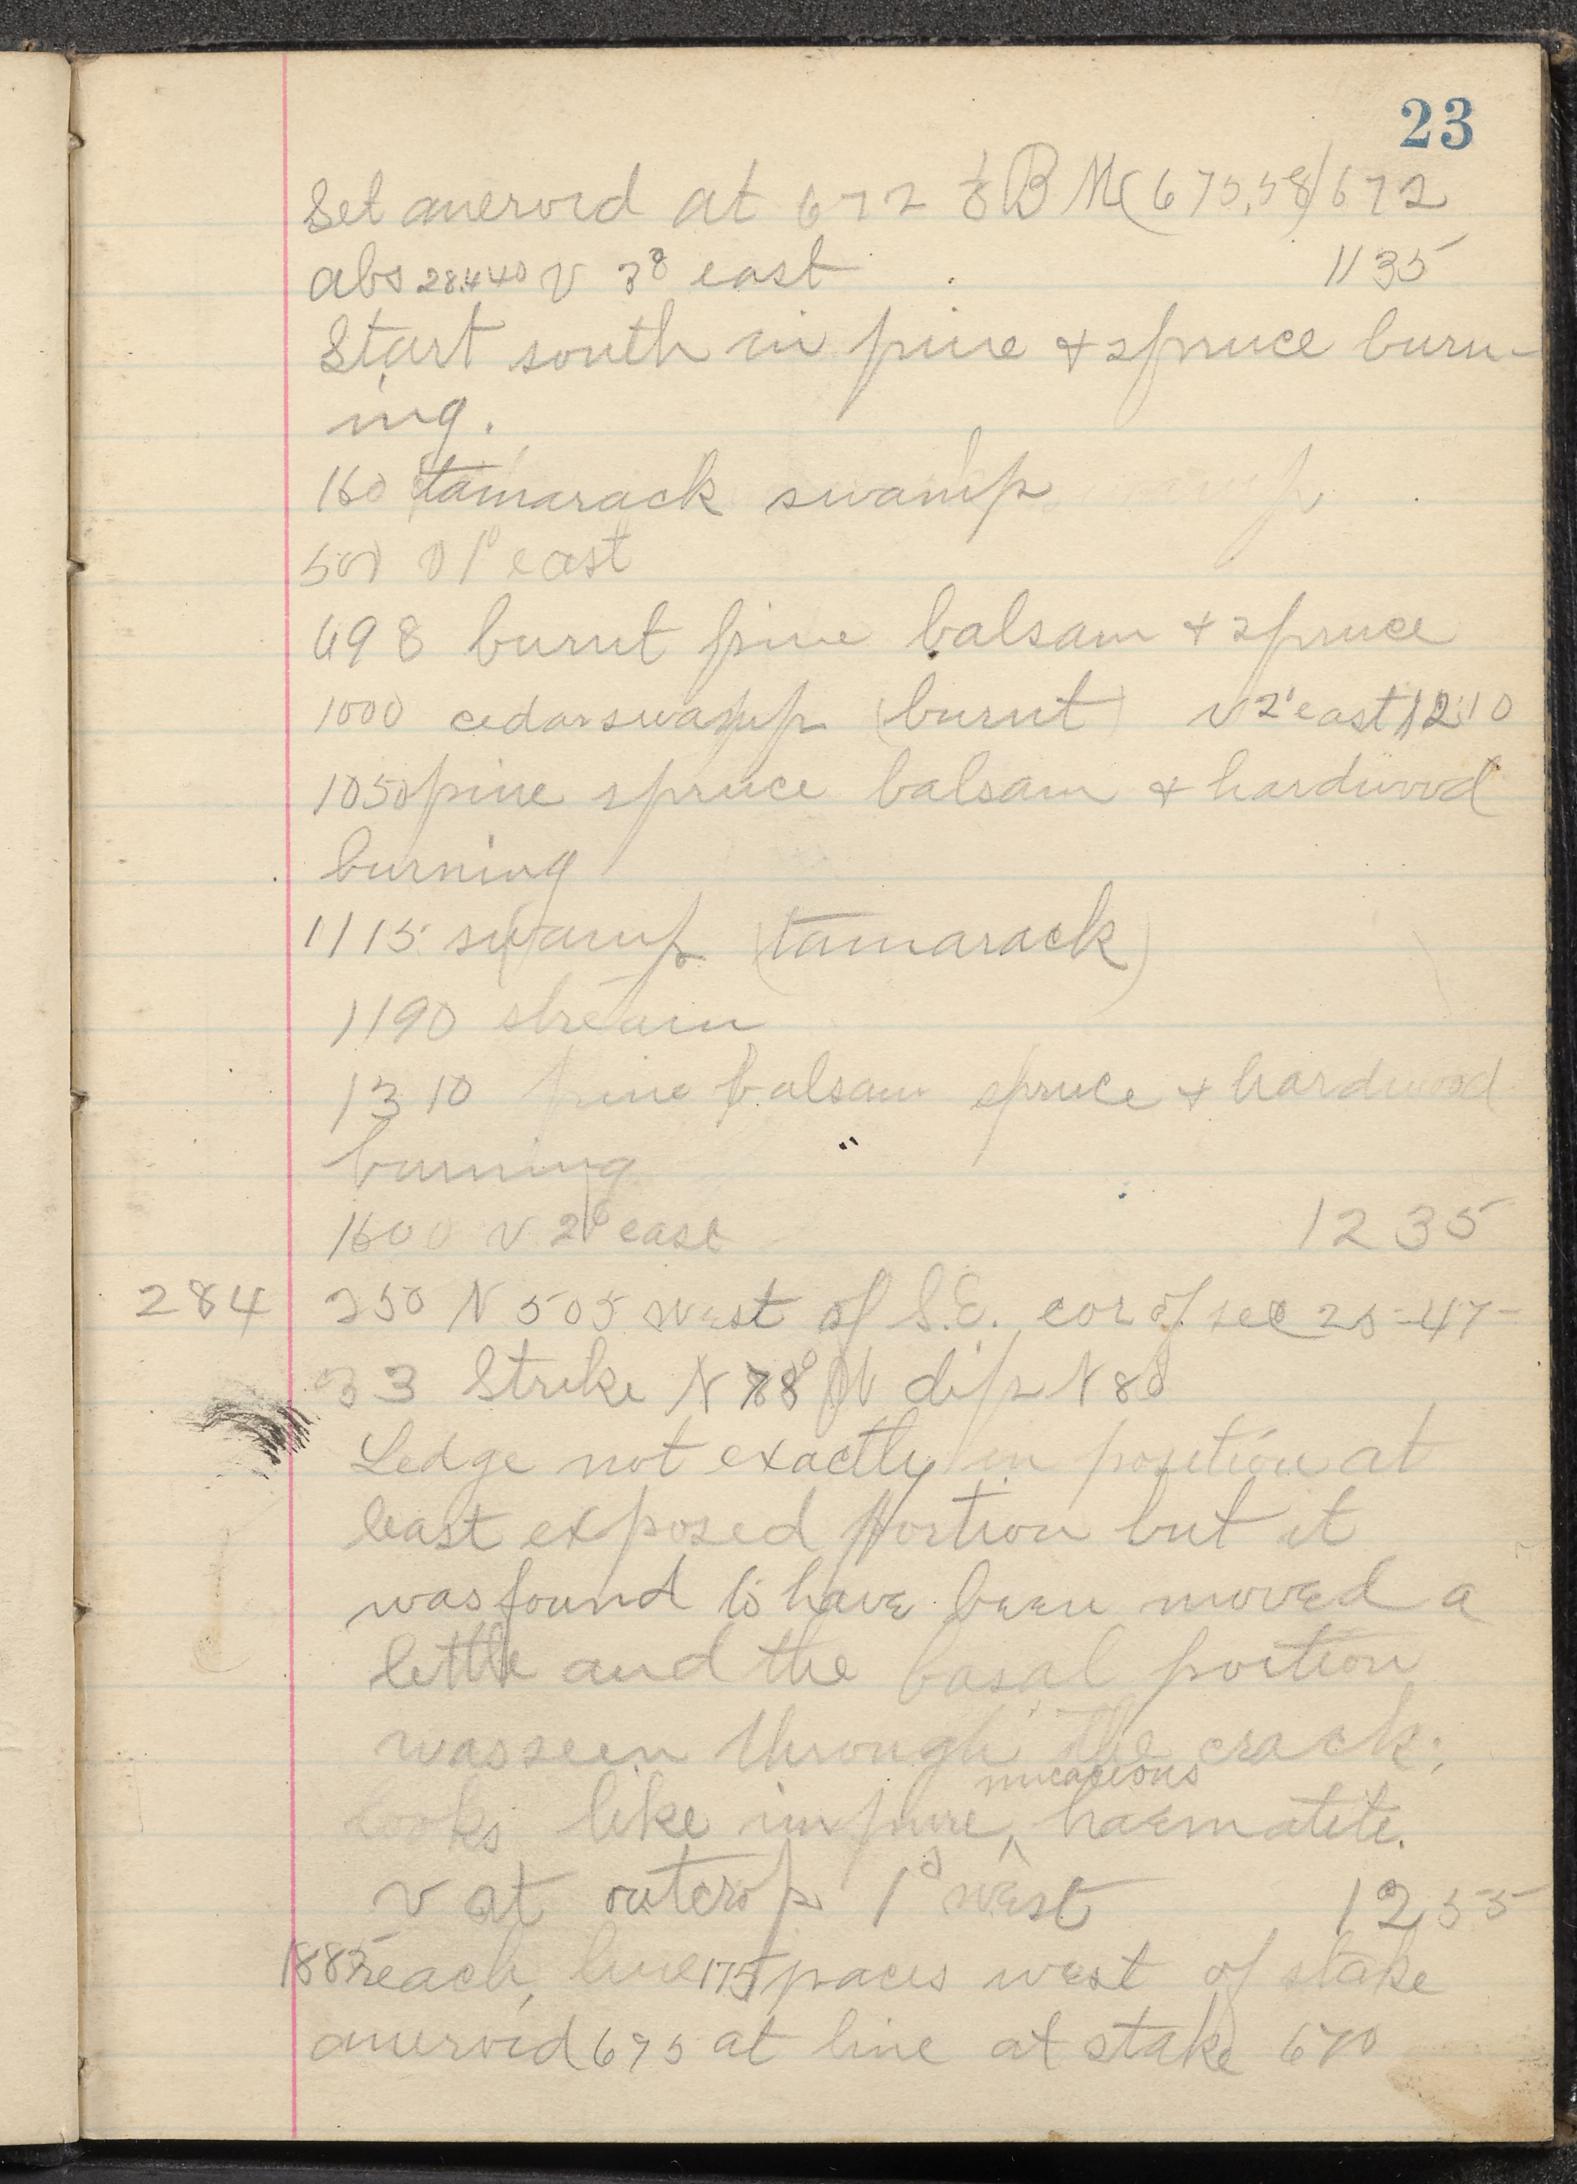 23
Set aneroid at 672 BM (675.58) 672
abs 28.440 V 3° east 1135
Start south in pine & spruce burn-
ing.
160 tamarack swamp
500 V 1° east
698 burnt pine balsam & spruce
1000 cedar swamp (burnt) V 2° east 1210
1050 pine spruce balsam & hardwood
burning
1115 swamp (tamarack)
1190 stream
1310 pine balsam spruce & hardwood
burning
1600 V 2° east 1235
284 250 N 505 west of S.E. cor of sec 25-47-
33 Strike N 78° W dip N 80
Ledge not exactly in position at
least exposed portion but it
was found to have been moved a
little and the basal portion
was seen through the crack;
micaceous
Looks like impure ^ haematite.
V at outcrop 1° west 1255
1885 reach line 175 paces west of stake
aneroid 675 at line at stake 670